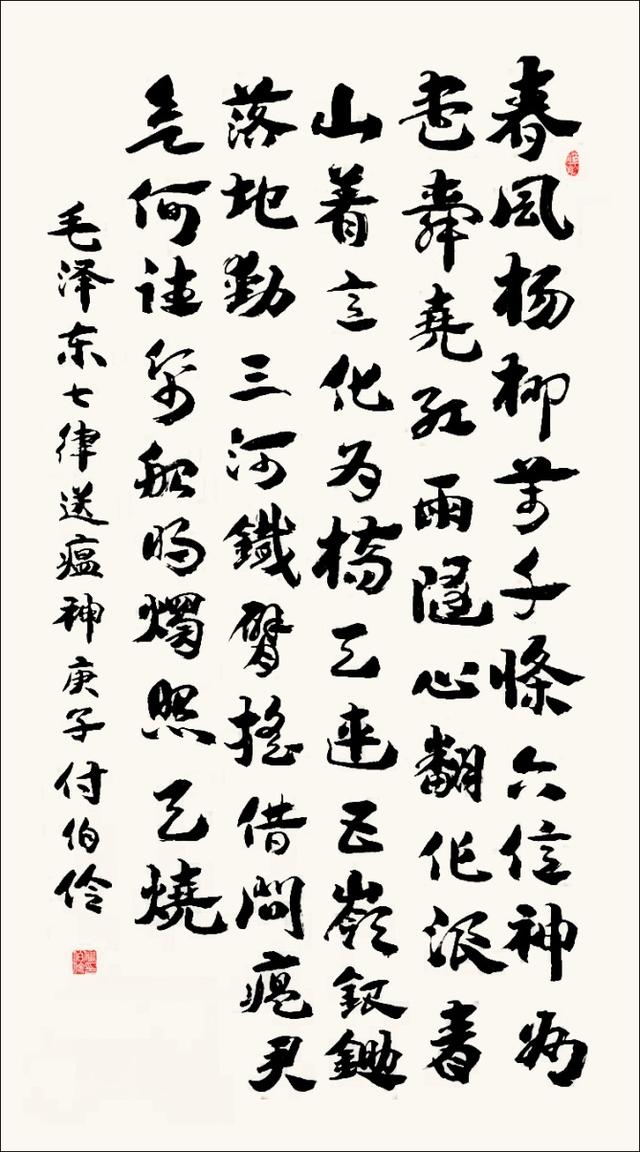 春風杨柳萬千條六億神州
盡舜堯紅雨隨心翻作浪青
山着意化為橋天連五嶺銀鋤
落地動三河鐵臂搖借問瘟君
欲何往紙船明燭照天燒
毛泽东七律送瘟神庚子付伯伶